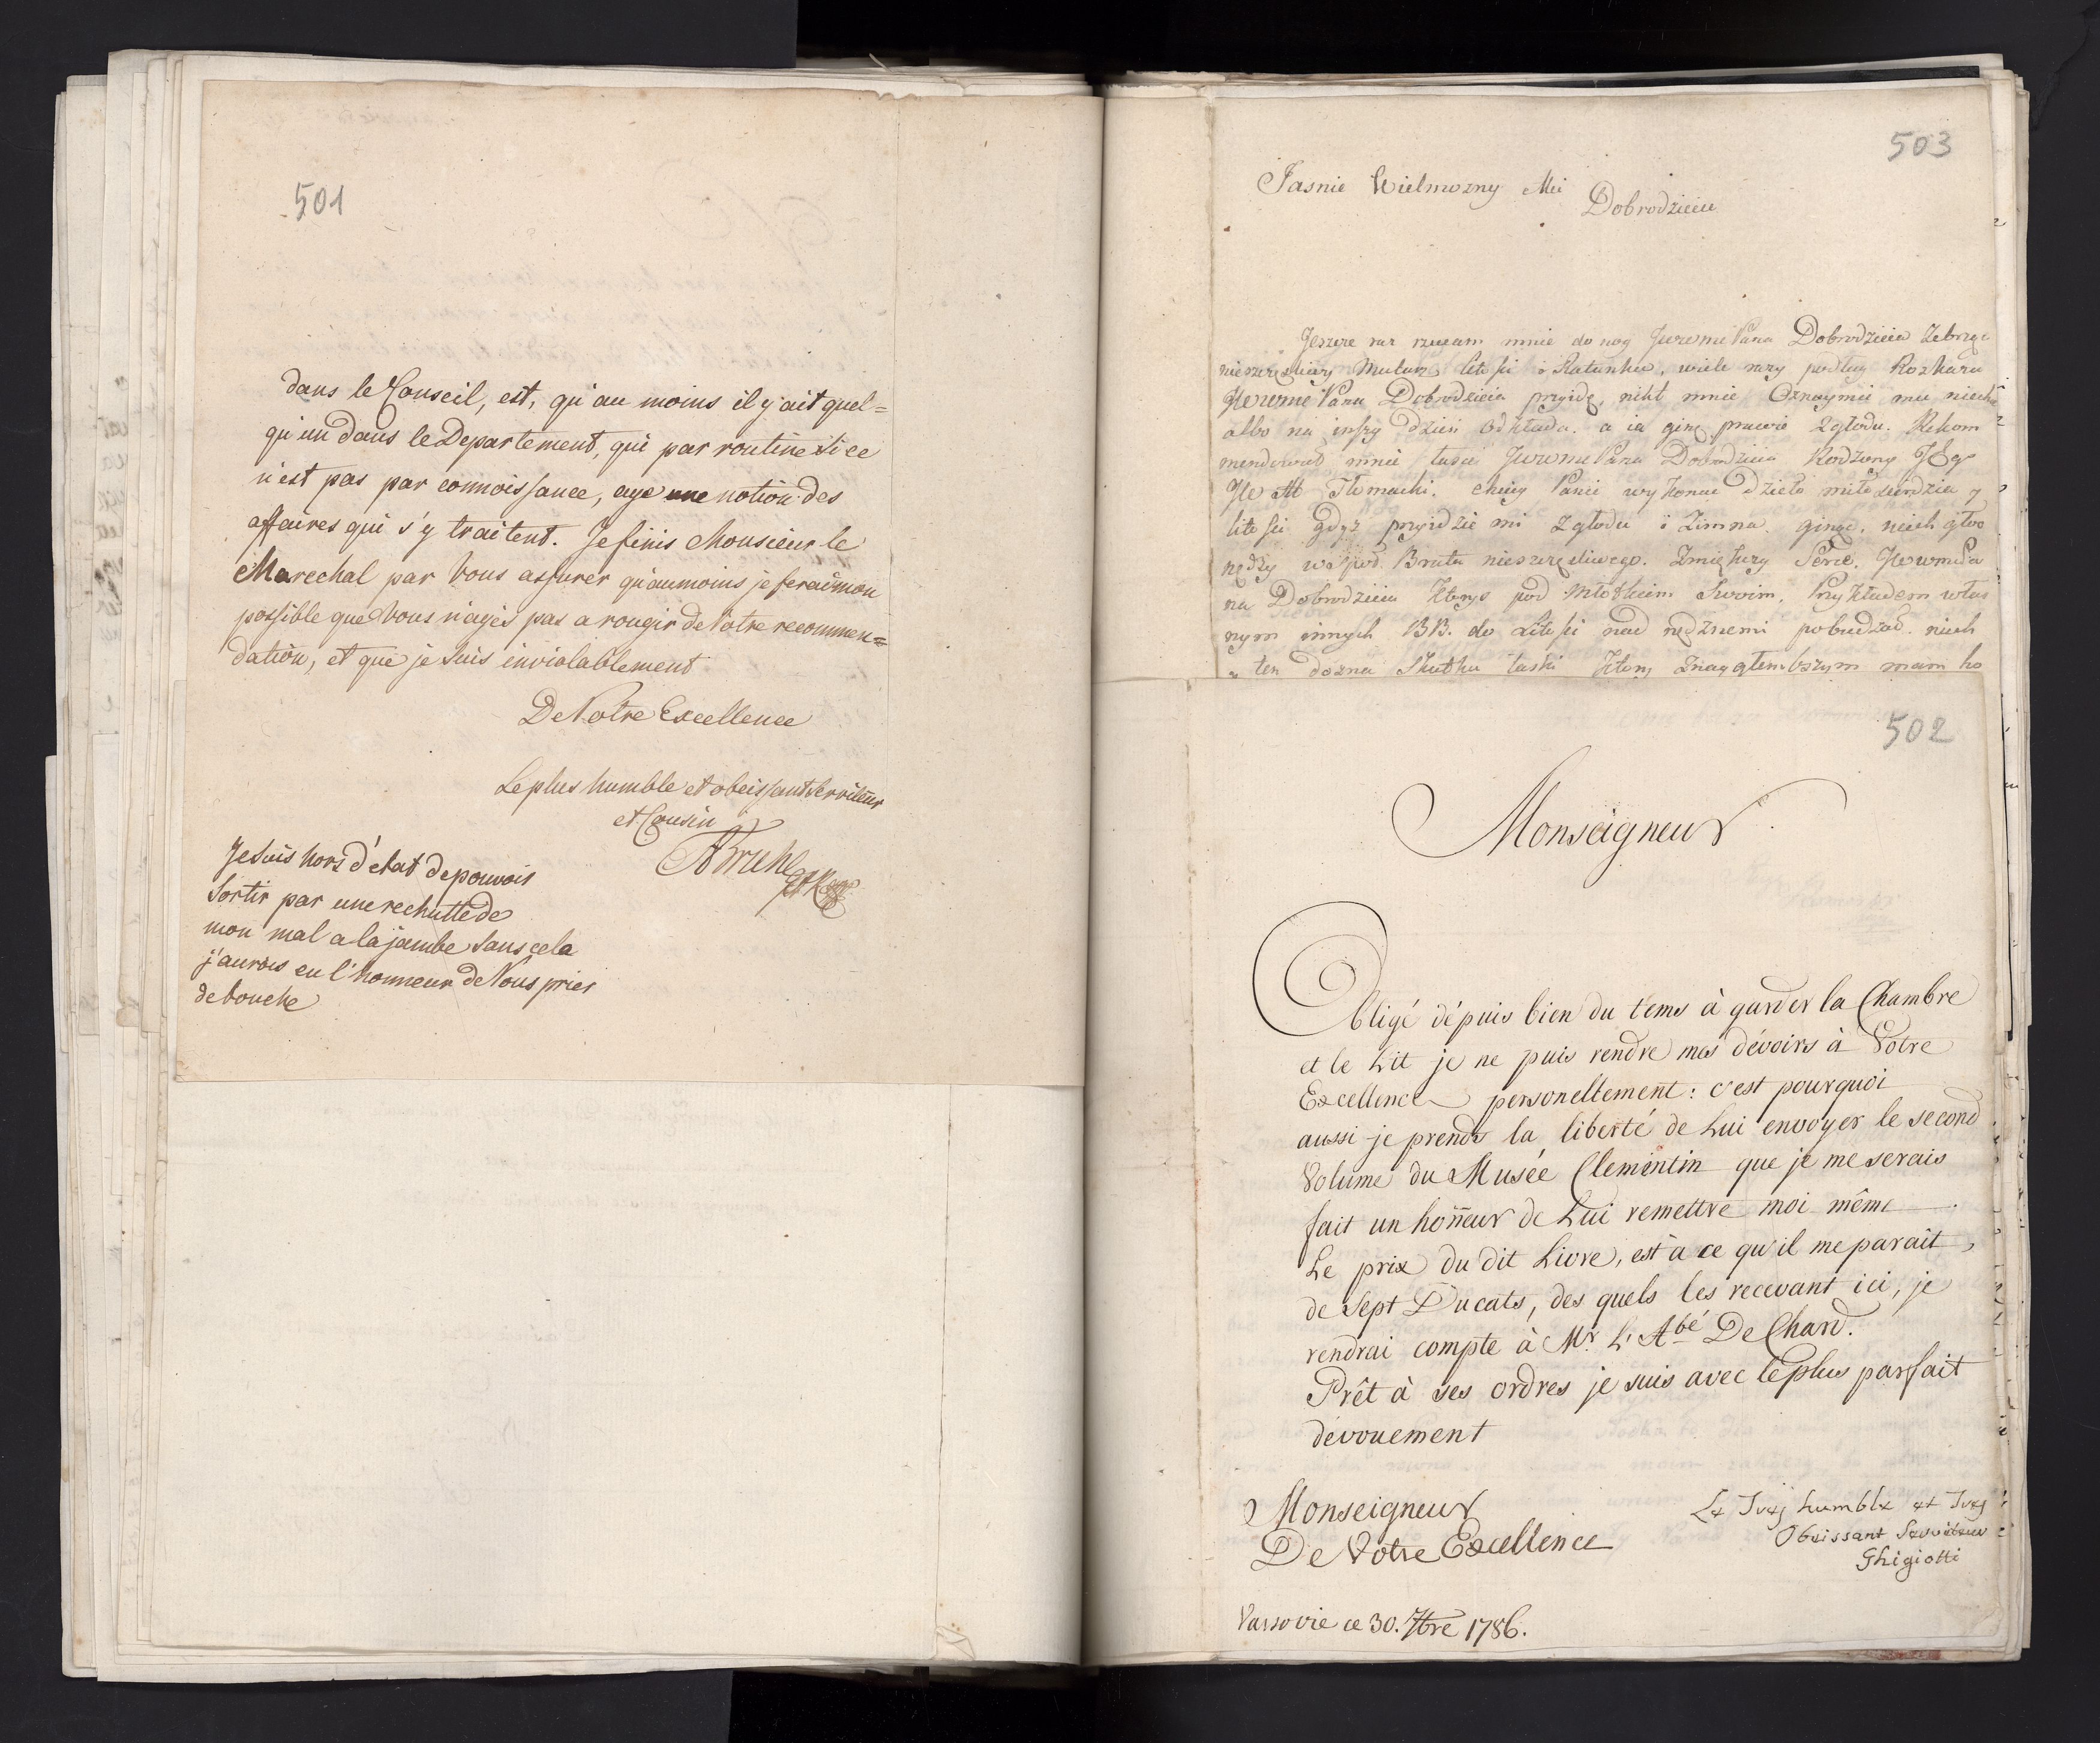 501
dans le Conseil, est, qu'au moins il y ait quel=
qu'un dans le Departement, qui par routine si ce
n'est pas par connoissance, aye une notion des
affaires qui s'y traitent. Je finis Monsieur le
Marechal par Vous assurer qu'aumoins je ferai mon
possible que Vous n'ayés pas a rougir de Votre recommen=
dation, et que je suis inviolablement
De Votre Excellence
Le plus humble et obeissant Serviteur
et Cousin
ABruhl
Je suis hors d'etat de pouvoir
Sortir par une rechutte de
mon mal a la jambe sans cela
j'aurois eu l'honneur de Vous prier
de bouche
503
Jasnie Wielmozny Mci
Dobrodzieiu
Jeszcze raz rzucam mnie do nog Jwwmc Pana Dobrodzieia zebrząc
nieszczęśliwy litości i Ratunku, wiele razy podług Rozkazu
Jwwmc Pana Dobrodzieia przyidę, nikt mnie Oznaymić nie niechc
albo na inszy dzień odkłada. a ia ginę prawie z głodu. Rekom
mendował mnie łasce Jwwmc Pana Dobrodzieia Rodzony Jego
Jw Tłomacki. chciey Panie wykonac dzieło miłosierdzia y
litości gdyż przyidzie mi z głodu i zimna ginąć. niech głos
nędzy Brata nieszczęsliwego. Zmiękczy Serce. Jwwmc Pa
na Dobrodzieia ktorys pod Młotkiem Swoim, Przykładem włas
nym innych BB. do Litości nad nędznemi pobudzać. niech
y ten dozna Skutku łaski ktory z naygłembszym mam ho
502
Monseigneur
Obligé dépuis bien du tems à garder la Chambre
et le Lit je ne puis rendre mes dévoirs à Votre
Excellence personellement: c'est pourquoi
aussi je prends la liberté de Lui envoyer le second
Volume du Musée Clementin que je me serais
fait un hoñeur de Lui remettre moi même.
Le prix du dit Livre, est à ce qu'il me parait,
de Sept Ducats, des quels les recevant ici, je
rendrai compte à Mr. L'Abé De Chard.
Prêt à ses ordres je suis avec le plus parfait
dévouement
Monseigneur
De Votre Excellence
Le Tres humble et Tres
Obeissant Serviteur
Ghigiotti
Varsovie ce 30. 7bre 1786.